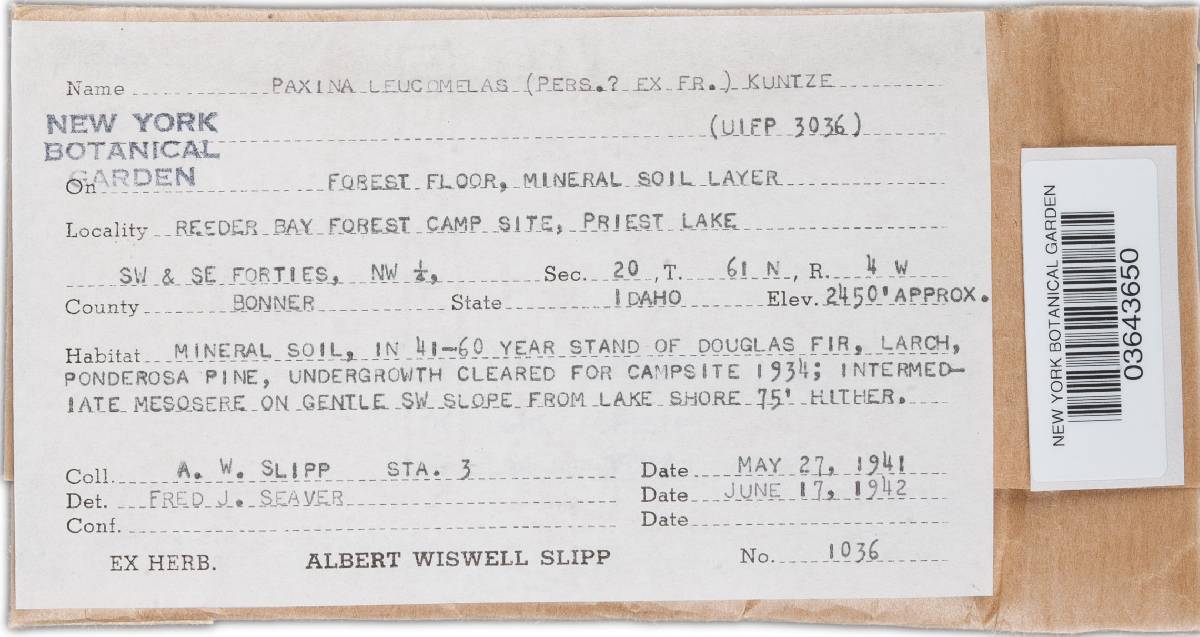 Name PAXINA LEUCOMELAS (PERS.? EX FR.) KUNTZE
NEW YORK
BOTANICAL
GARDEN
(UIFP 3036)
On FOREST FLOOR, MINERAL SOIL LAYER
Locality REEDER BAY FOREST CAMP SITE, PRIEST LAKE
SW & SE FORTIES, NW ¼, Sec. 20, T. 61 N, R. 4 W
County BONNER State IDAHO Elev. 2450' APPROX.
Habitat MINERAL SOIL, IN 41-60 YEAR STAND OF DOUGLAS FIR, LARCH,
PONDEROSA PINE, UNDERGROWTH CLEARED FOR CAMPSITE 1934; INTERMED-
IATE MESOSERE ON GENTLE SW SLOPE FROM LAKE SHORE 75' HITHER.
Coll. A. W. SLIPP STA. 3 Date MAY 27, 1941
Det. FRED J. SEAVER Date JUNE 17, 1942
Conf. Date
EX HERB. ALBERT WISWELL SLIPP No. 1036
NEW YORK BOTANICAL GARDEN
03643650